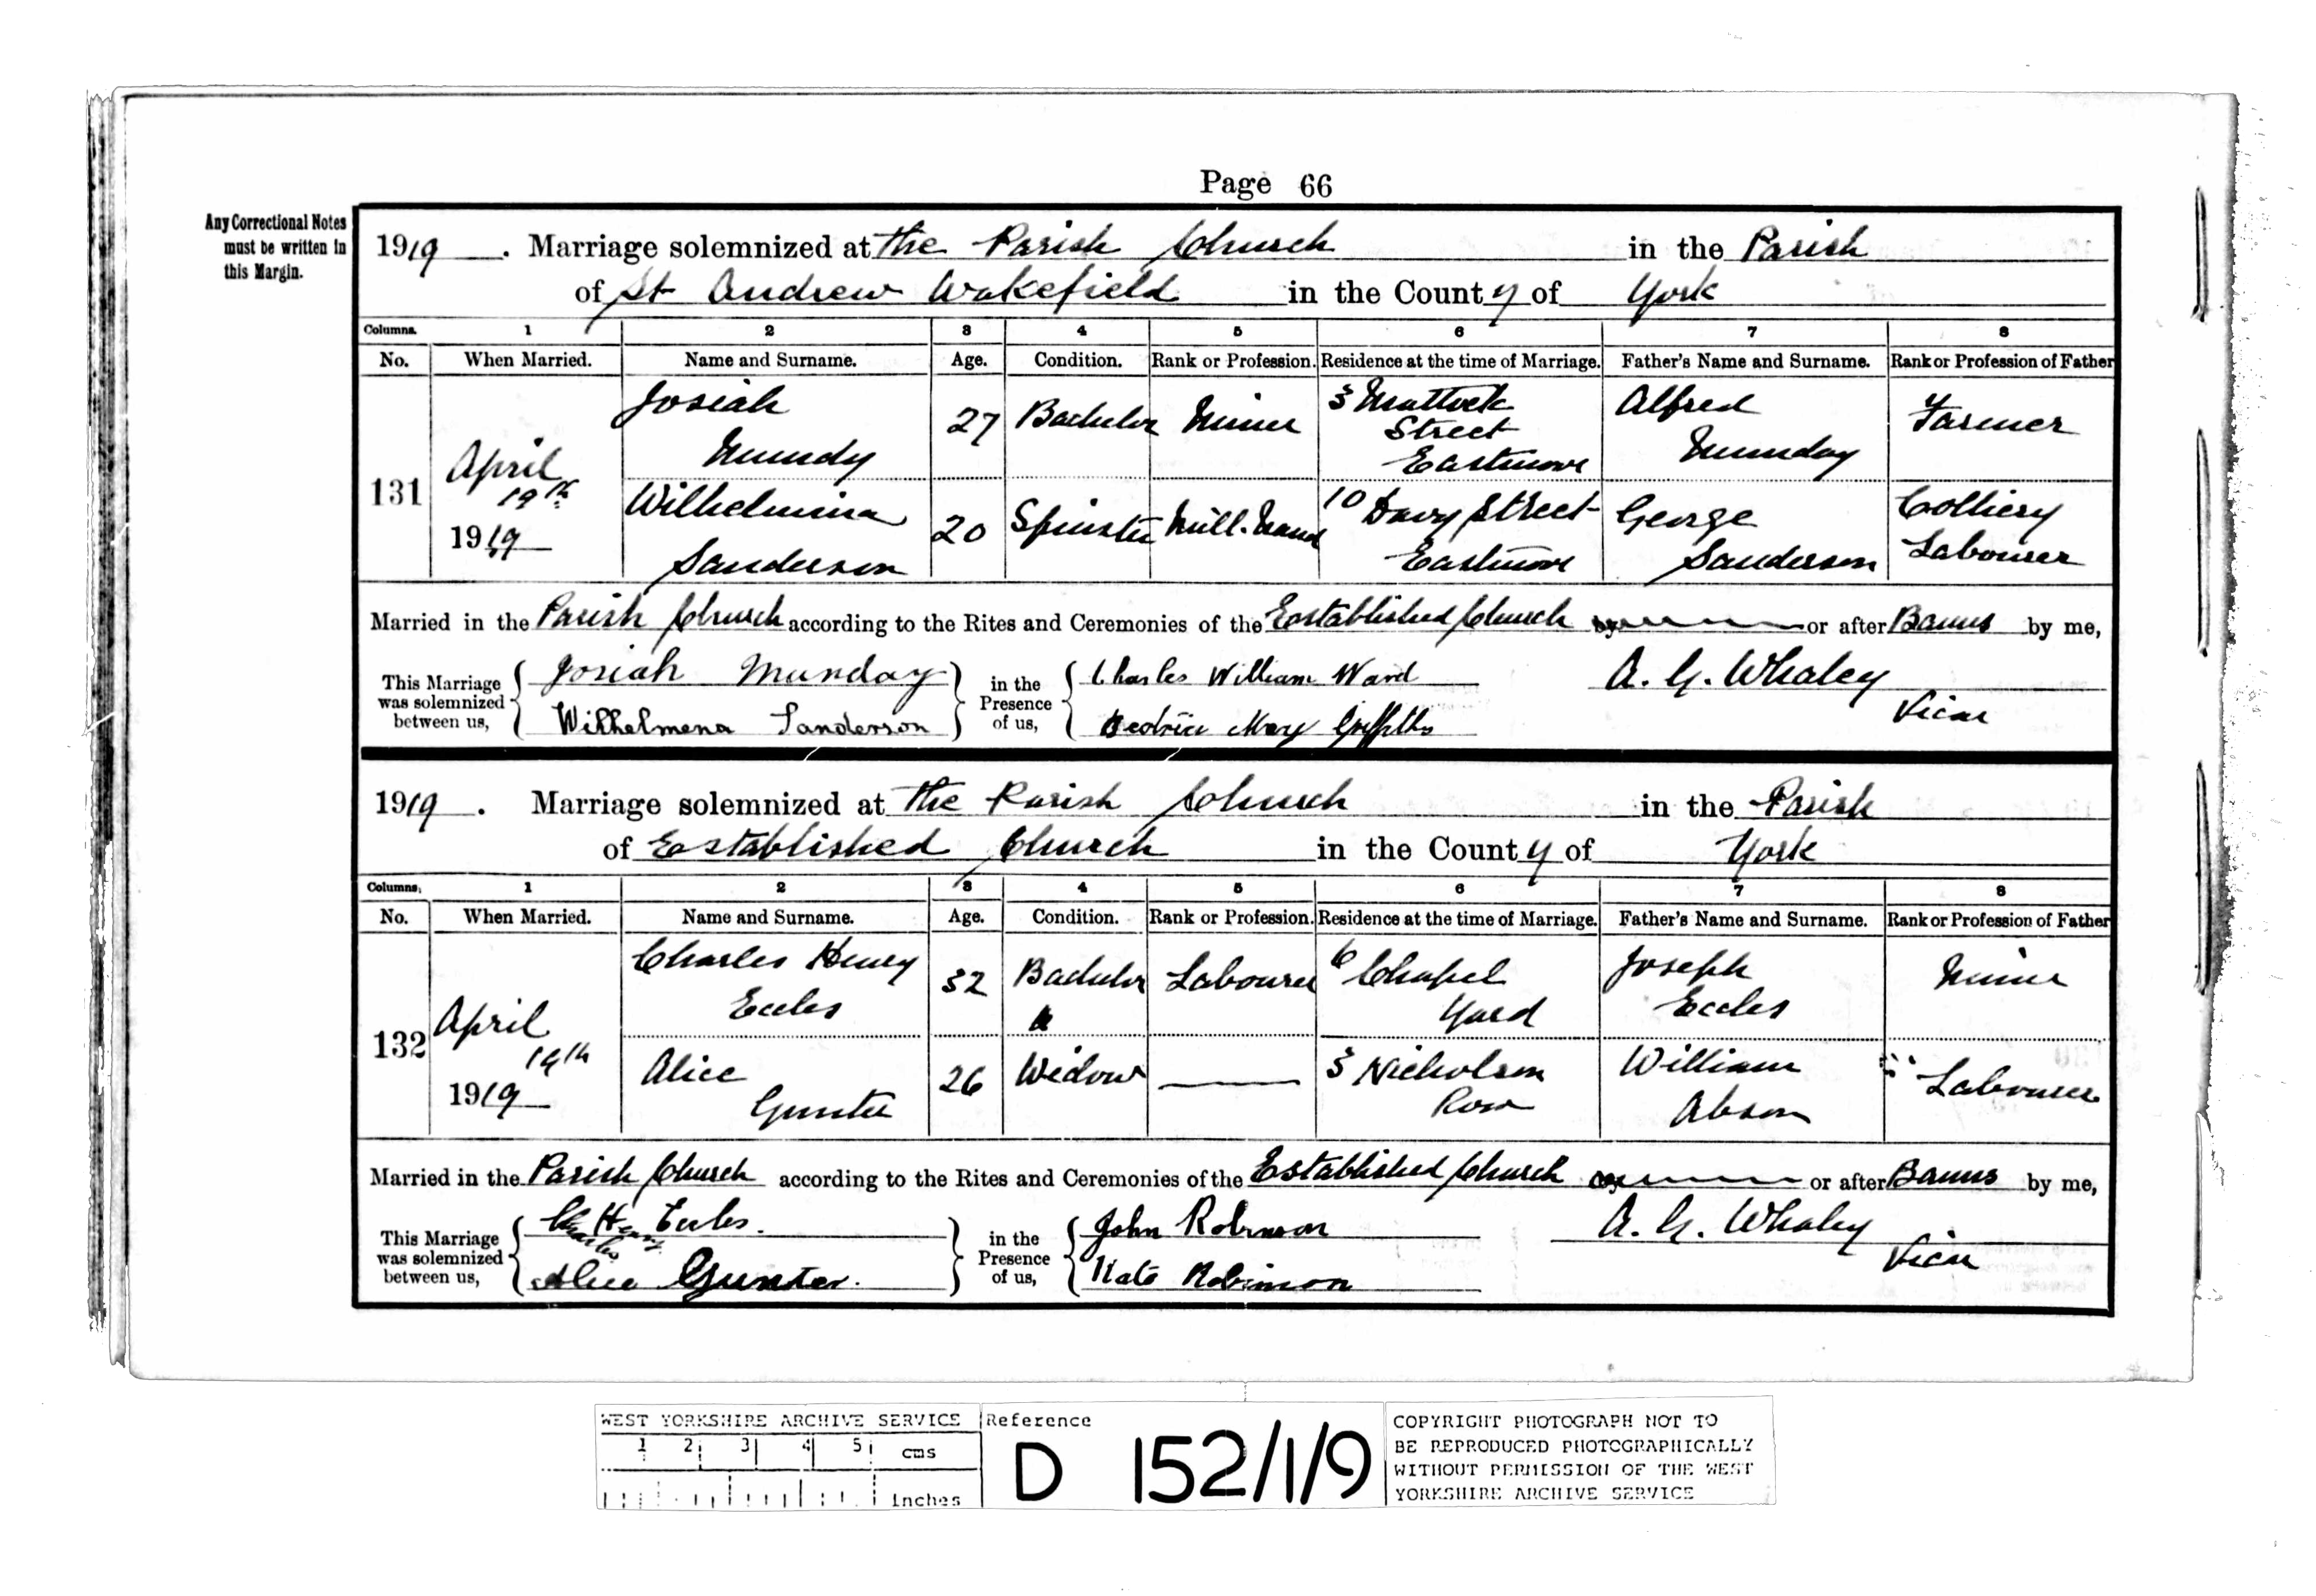 Page 66
Any Correctional Notes
must be written in
this Margin.
1919. Marriage solemnized at the Parish Church in the Parish
of St Andrew Wakefield in the County of York
Columns. 1 2 3 4 5 6 7 8
No. When Married. Name and Surname. Age. Condition. Rank or Profession. Residence at the time of Marriage. Father's Name and Surname. Rank or Profession of Father
131 April 19th 1919
Josiah Mundy 27 Bachelor Miner 3 Mattock Street Eastmoor Alfred Munday Farmer
Wilhelmina Sanderson 20 Spinster Mill. Hand 10 Davy Street Eastmoor George Sanderson Colliery Labourer
Married in the Parish Church according to the Rites and Ceremonies of the Established Church by or after Banns by me,
This Marriage was solemnized between us, Josiah Munday Wilhelmena Sanderson in the Presence of us, Charles William Ward Beatrice Mary Griffiths A. G. Whaley Vicar
1919. Marriage solemnized at the Parish Church in the Parish
of Established Church in the County of York
Columns. 1 2 3 4 5 6 7 8
No. When Married. Name and Surname. Age. Condition. Rank or Profession. Residence at the time of Marriage. Father's Name and Surname. Rank or Profession of Father
132 April 19th 1919
Charles Henry Eccles 32 Bachelor Labourer 6 Chapel Yard Joseph Eccles Miner
Alice Gunter 26 Widow 3 Nicholson Row William Abson Labourer
Married in the Parish Church according to the Rites and Ceremonies of the Established Church by or after Banns by me,
This Marriage was solemnized between us, Charles Henry Eccles. Alice Gunter. in the Presence of us, John Robinson Kate Robinson A. G. Whaley Vicar
WEST YORKSHIRE ARCHIVE SERVICE Reference
1 2 3 4 5 cms
inches
D 152/1/9
COPYRIGHT PHOTOGRAPH NOT TO
BE REPRODUCED PHOTOGRAPHICALLY
WITHOUT PERMISSION OF THE WEST
YORKSHIRE ARCHIVE SERVICE